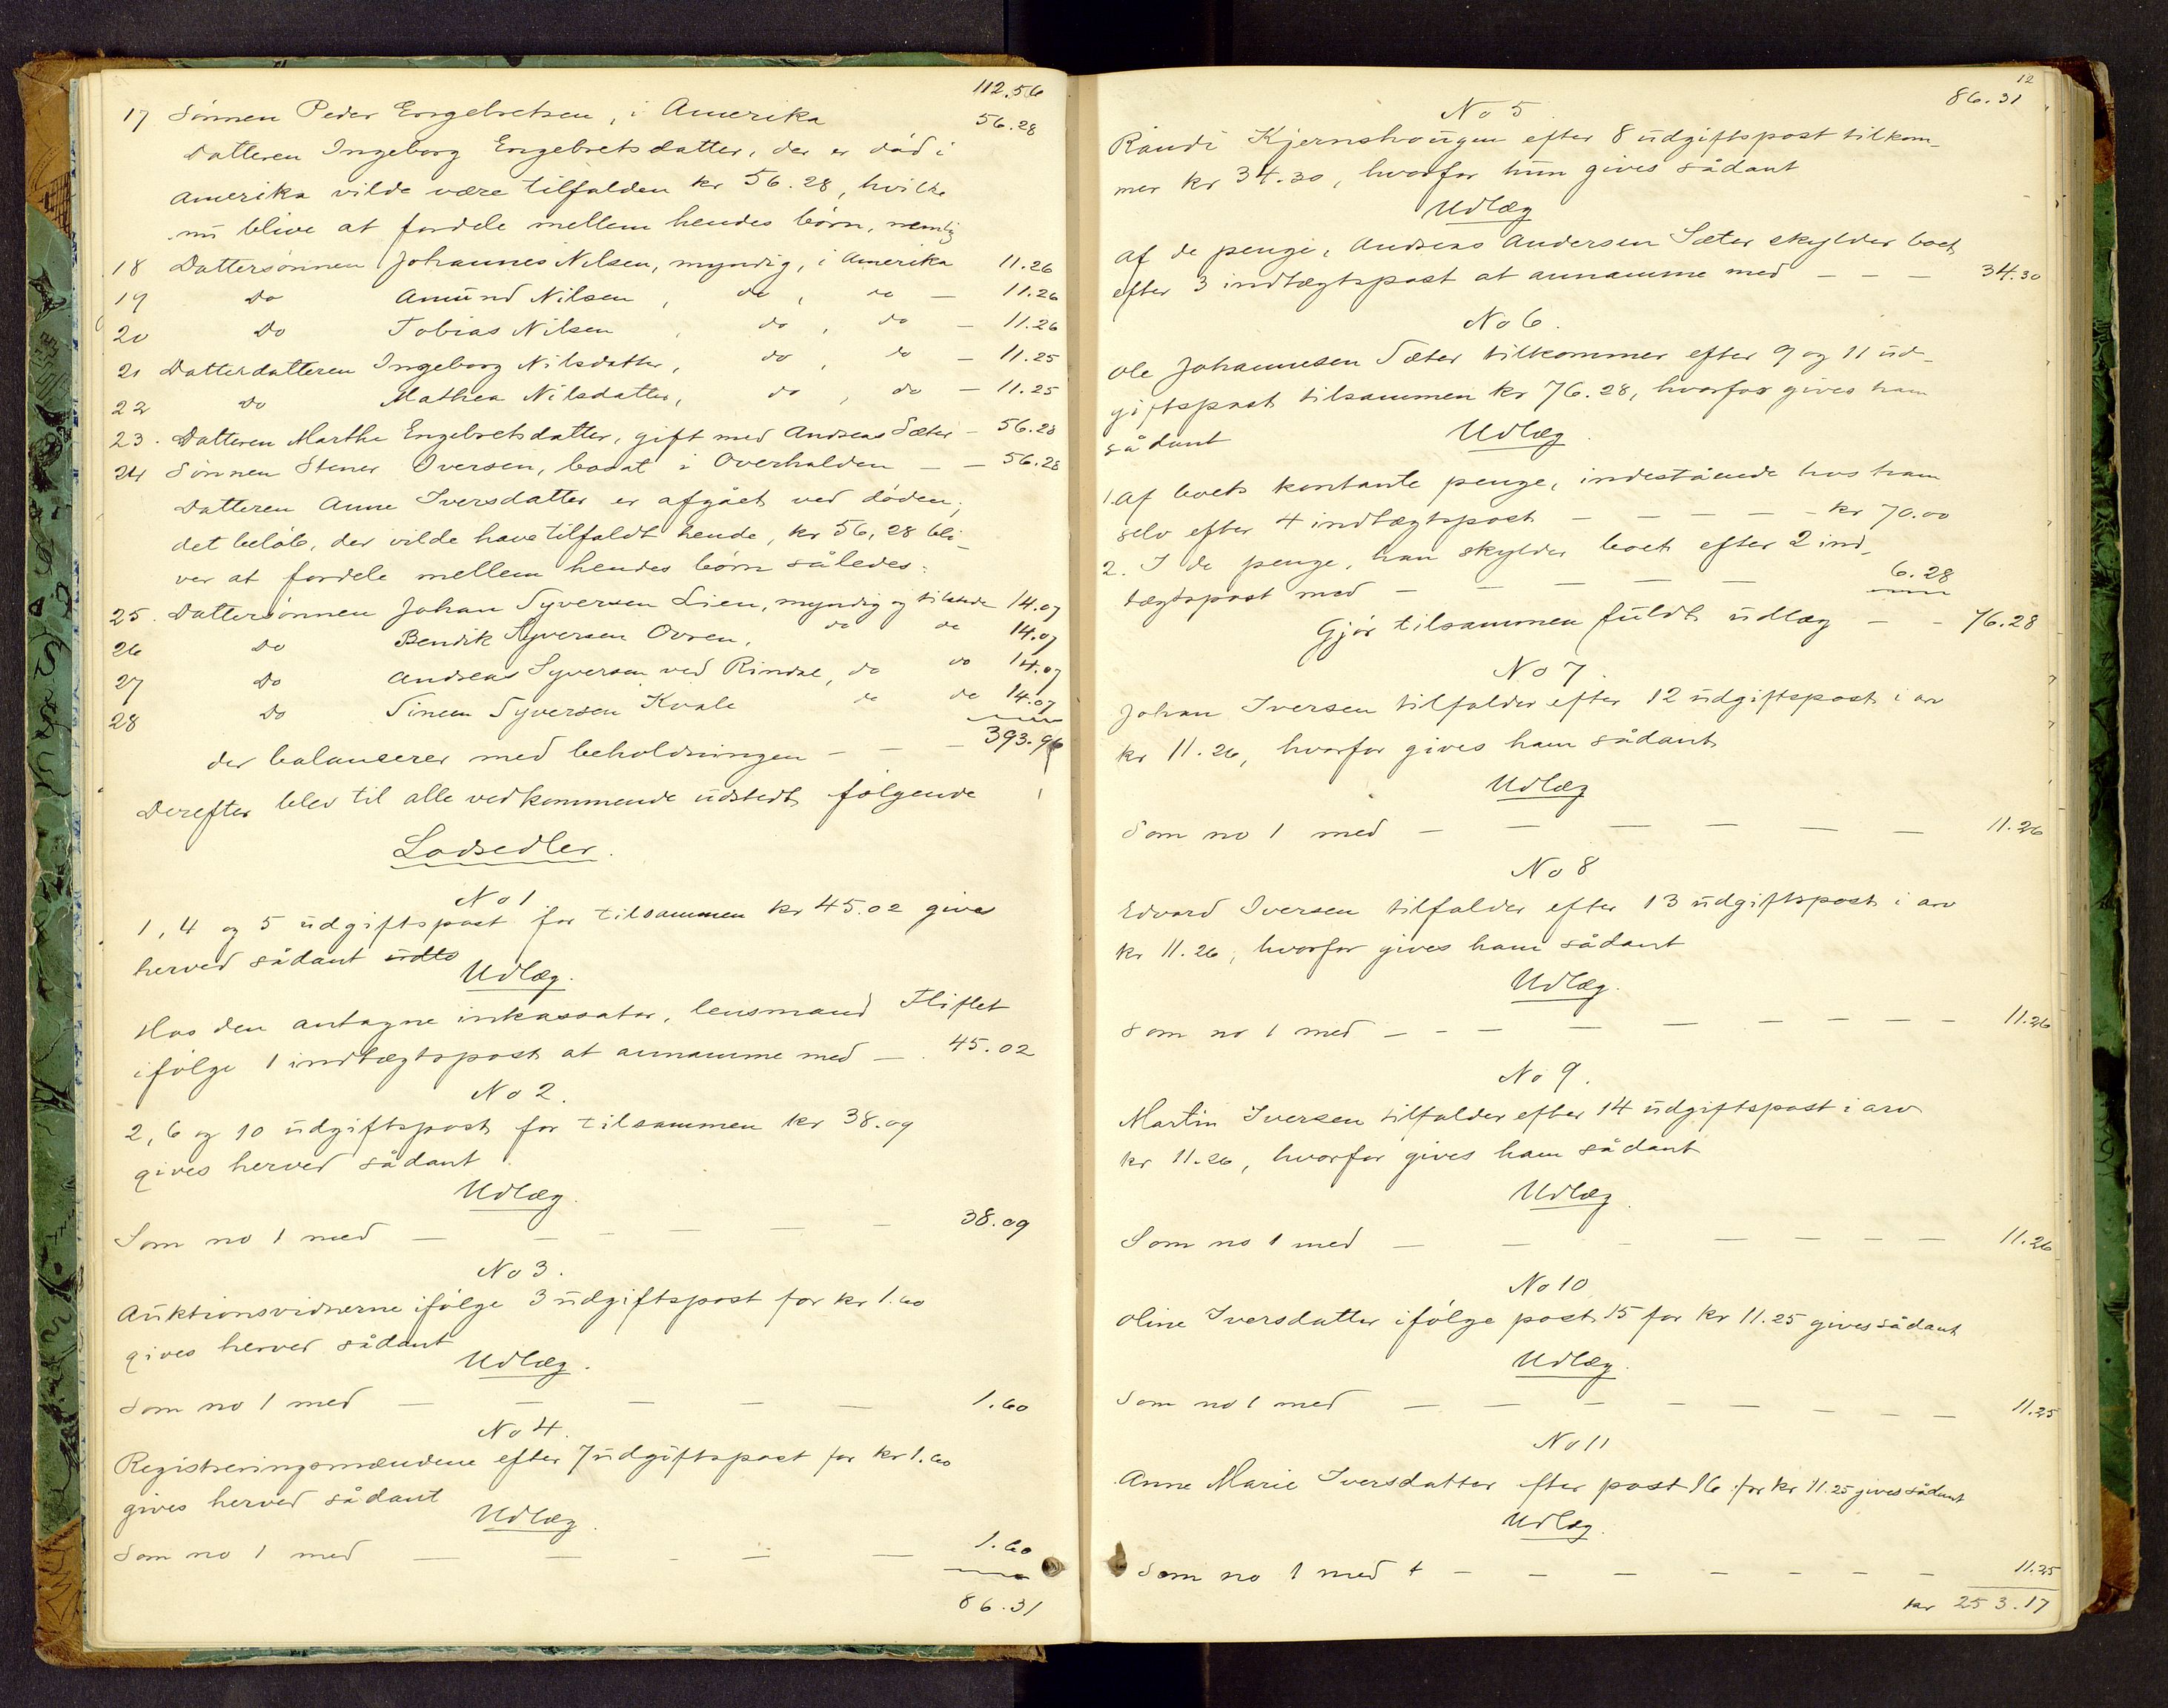 112.56
17 Sønnen Peder Engebretsen, i Amerika 56.28
Datteren Ingeborg Engebretsdatter, der er død i
Amerika vilde være tilfalden kr 56.28, hvilke
nu blive at fordele mellem hendes børn, nemlig
18 Dattersønnen Johannes Nilsen, myndig, i Amerika 11.26
19 Do Amund Nilsen, do, do — 11.26
20 Do Tobias Nilsen, do, do — 11.26
21 Datterdatteren Ingeborg Nilsdatter, do, do — 11.25
22 Do Mathea Nilsdatter, do, do — 11.25
23. Datteren Marthe Engebretsdatter, gift med Andreas Sæter — 56.28
24 Sønnen Stener Iversen, bosat i Overhalden — — 56.28
Datteren Anne Iversdatter er afgået ved døden;
det beløb, der vilde have tilfaldt hende, kr 56,28 bli-
ver at fordele mellem hendes børn således:
25. Dattersønnen Johan Syversen Lien, myndig og tilstede 14.07
26 Do Bendik Syversen Ovren, do do 14.07
27 Do Andreas Syversen ved Rindal, do do 14.07
28 Do Simen Syversen Kvale do do 14.07
der balanserer med beholdningen — — — 393.96
Derefter blev til alle vedkommende udstedt følgende
Lodsedler.
No 1
1, 4 og 5 udgiftspost for tilsammen kr 45.02 gives
herved sådant udto
Udlæg.
Hos den antagne inkassator, lensmand Fliflet
ifølge 1 indtægtspost at annamme med — 45.02
No 2.
2, 6 og 10 udgiftspost for tilsammen kr 38.09
gives herved sådant
Udlæg.
Som no 1 med — — — — — — 38.09
No 3.
Auktionsvidnerne ifølge 3 udgiftspost for kr 1.60
gives herved sådant
Udlæg.
Som no 1 med — — — — — 1.60
No 4.
Registreringsmændene efter 7 udgiftspost for kr 1.60
gives herved sådant
Udlæg.
Som no 1 med — — — — — 1.60
86.31
12
86.31
No 5
Randi Kjernshougen efter 8 udgiftspost tilkom-
mer kr 34.30, hvorfor hun gives sådant
Udlæg
af de penge, Andreas Andersen Sæter skylder boet
efter 3 indtægtspost at annamme med — — — 34.30
No 6.
Ole Johannesen Sæter tilkommer efter 9 og 11 ud-
giftspost tilsammen kr 76.28, hvorfor gives ham
sådant Udlæg.
1. Af boets kontante penge, indestående hos ham
selv efter 4 indtægtspost — — — — — kr 70.00
2. I de penge, han skylder boet efter 2 ind-
tægtspost med — — — — — 6.28
Gjør tilsammen fuldt udlæg — — 76.28
No 7.
Johan Iversen tilfalder efter 12 udgiftspost i arv
kr 11.26, hvorfor gives ham sådant
Udlæg
Som no 1 med — — — — — — 11.26
No 8
Edvard Iversen tilfalder efter 13 udgiftspost i arv
kr 11.26, hvorfor gives ham sådant
Udlæg.
Som no 1 med — — — — — — — — — 11.26
No 9.
Martin Iversen tilfalder efter 14 udgiftspost i arv
kr 11.26, hvorfor gives ham sådant
Udlæg.
Som no 1 med — — — — — — — 11.26
No 10
Oline Iversdatter ifølge post 15 for kr 11.25 gives sådant
Udlæg.
Som no 1 med — — — — — — — — 11.25
No 11
Anne Marie Iversdatter efter post 16 for kr 11.25 gives sådant
Udlæg.
Som no 1 med — — — — — — — 11.25
kr 253.17